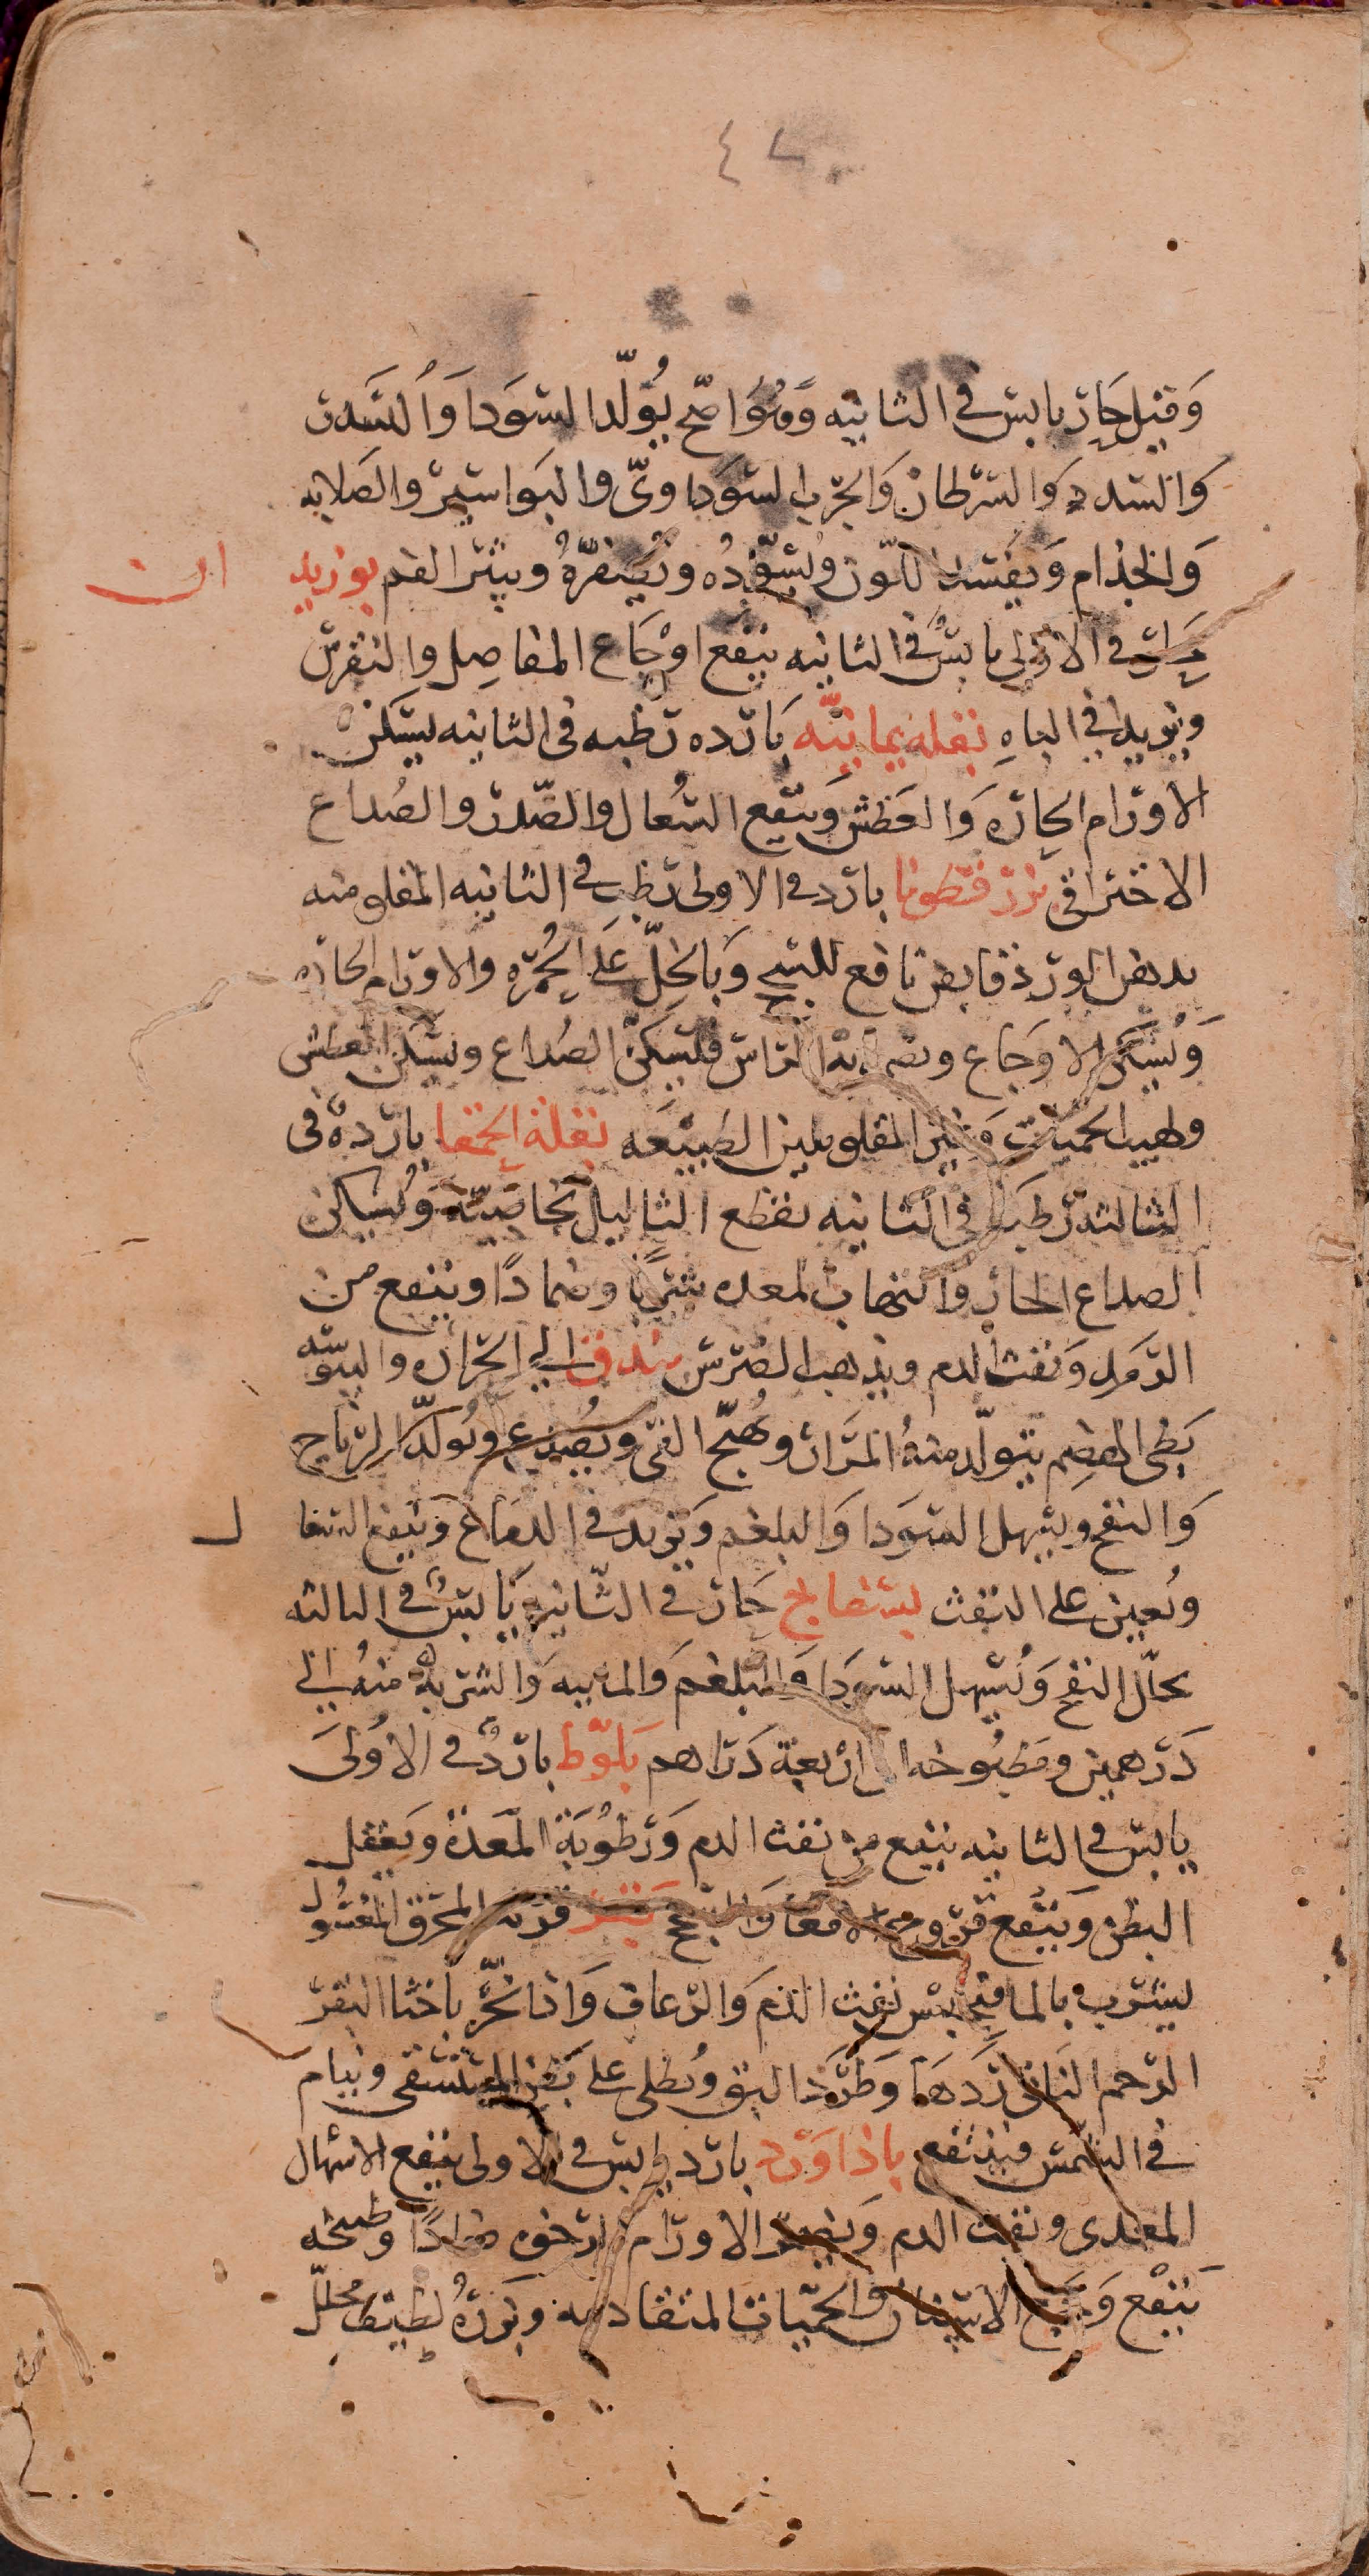 ٤٧
وَقيل حَارّ يابس في الثانيه وَهُوَ اصّح يُولّد السَودا وَالسَدر
وَالسدد وَالسرطان وَالجرب السَودَاويّ والبَواسير والصَلابه
وَالجذام وَيفسد اللّون ويُسوّدُه ويُصفرّهُ ويبثر الفم بوزيدان
حار في الاولى يابسٌ في الثانيه ينفع اوْجَاع المفاصِل والنقرس
ويزيد في الباهِ بقلة يمانيّه بَارده رَطبه في الثانيه يسكن
الاورام الحارّه وَالعَطش وَينفع السُعال والصّدر والصُداع
الاحتراقي بزر قطونا بارد في الاولى رَطب في الثانيه المقلو منه
بدهن الورد قابض نافع للسحج وَبالخلّ على الحُمره والاورام الحاره
وَيُسكن الاوجَاع ويضمد به الراس فيسكن الصُداع ويسكن العطش
ولهيب الحميات وَغير المقلو يلين الطبيعَه بقلة الحمقا باردهٌ في
الثالثه رَطبَه في الثانيه يقطع الثاليل بخاصيّته وَيُسكن
الصداع الحار والتهاب المعده شربًا وضمادًا وينفع من
الرَمَد وَنفث الدم ويذهب الضرس بندق الي الحَرَاره واليبوسه
بَطيُ الهضم يتولّد منهُ المَرَار ويُهيّج القى ويُصَدع ويُولّد الرياح
وَالنفخ ويسهل السَودا وَالبلغم وَيزيد في الدمَاغ وَينفع السعال
ويُعين على النفث بسفايج حَار في الثانيه يَابسٌ في الثالثه
يحلّل النفخ وَيُسهل السَودا وَالبلغم وَالمائيه وَالشربهُ منهُ الي
دَرهمين ومَطبُوخه الى اربعَة دَراهم بَلوّط باردٌ في الاُولىَ
يابس في الثانيه ينفع من نفث الدم وَرطوُبَة المَعدة وَيعقل
البطن وَينفع قروح الامعَا وَالسحج بقر قرنه المحرق المغسُول
يُشرب بالما فيحبس نفث الدَم وَالرعاف وَاذا بُخّر باخثا البقر
الرحم الناتى رَدهَا وَطَردَ البق ويُطلى على بَطن المستسقى وينام
في الشمس فينتفع باذاوَرد بارد يابس في الاولى ينفع الاسهال
المعدى ونفث الدم وَيضمد الاورام الرخوه ضمادًا وطبيخه
يَنفْع وَجَع الاسنان والحمّيات المتقادمه وبَزرهُ لطيف محلل